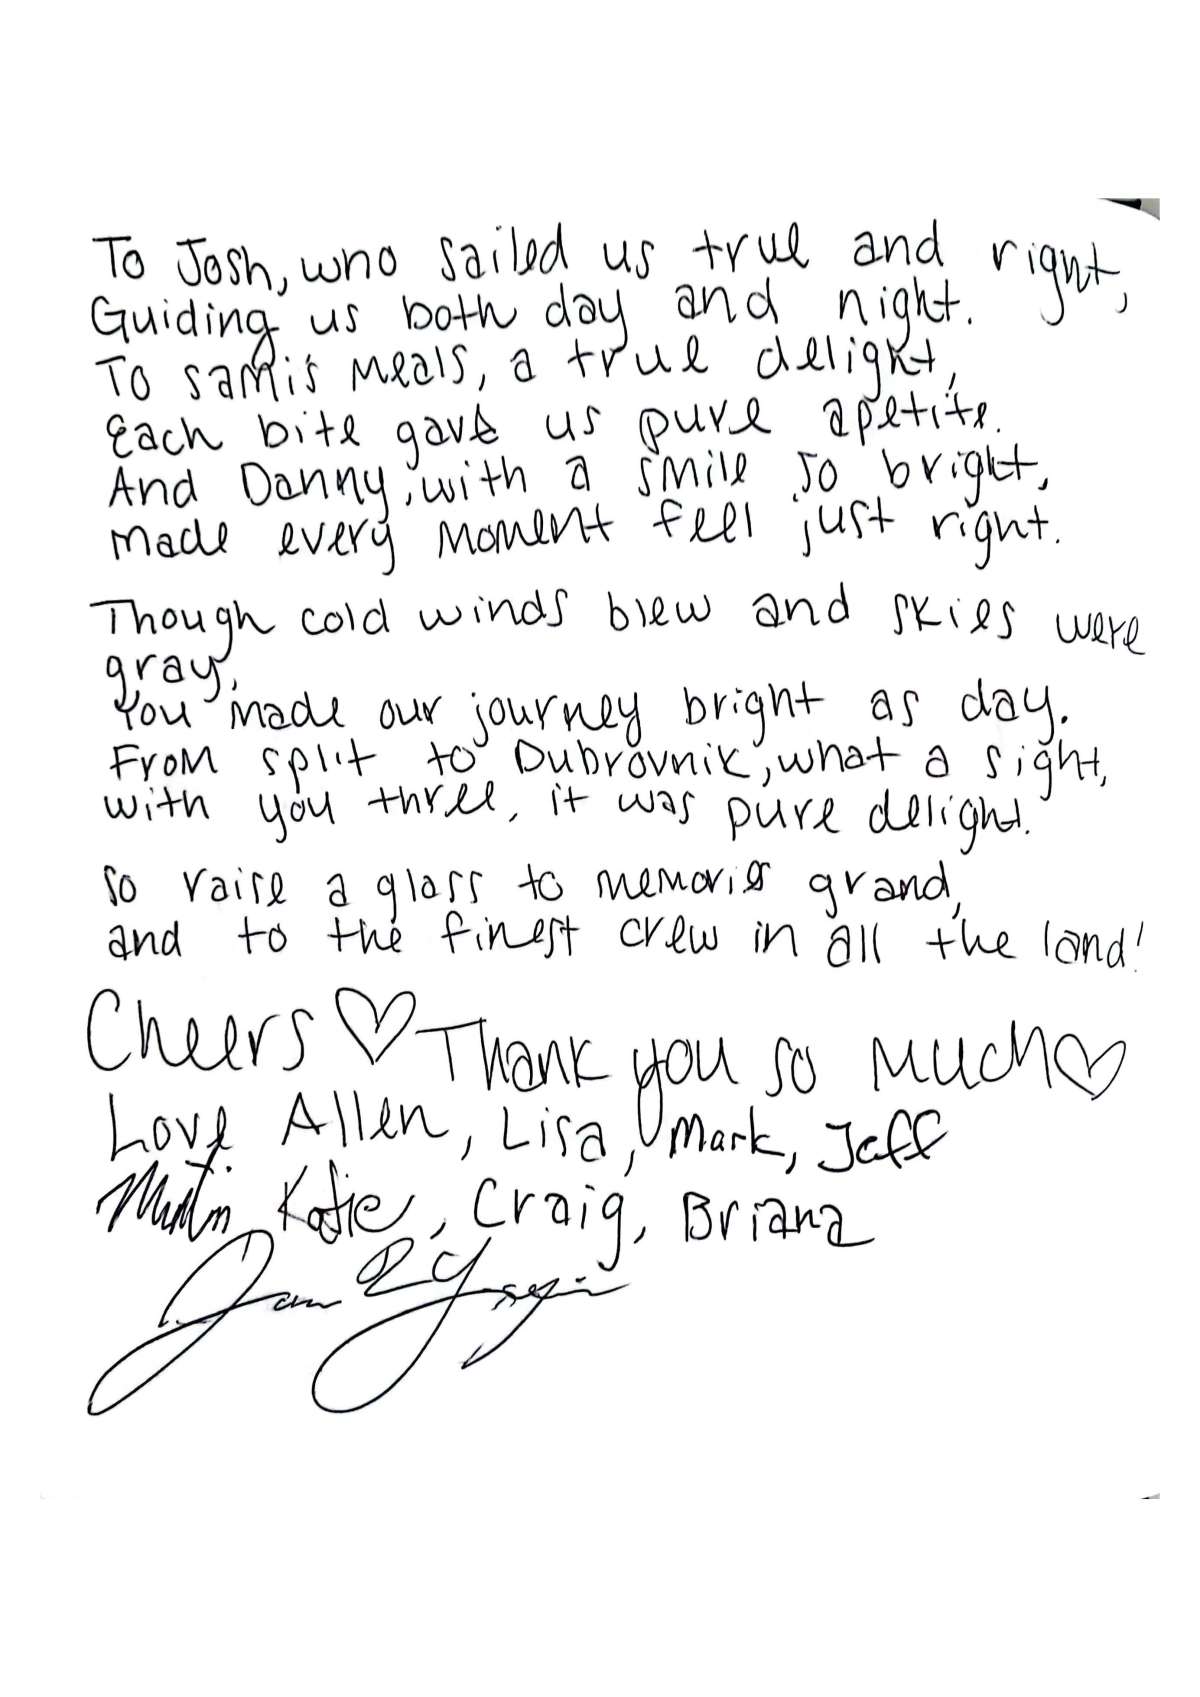 To Josh, who sailed us true and right,
Guiding us both day and night.
To sami's meals, a true delight,
Each bite gave us pure apetite.
And Danny, with a smile so bright,
made every moment feel just right.
Though cold winds blew and skies were
gray,
You made our journey bright as day.
From split to Dubrovnik, what a sight,
with you three, it was pure delight.
so raise a glass to memories grand,
and to the finest crew in all the land!
Cheers ♡ Thank you so much ♡
Love Allen, Lisa, Mark, Jeff
Katie, Craig, Briana